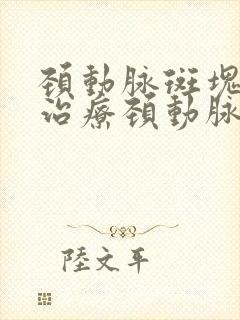 頚動脈斑塊
治療頚動脈
陸文平